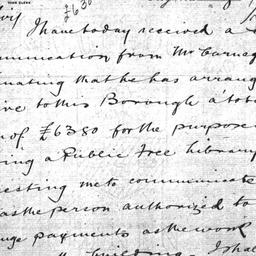 TOWN CLERK
£630
I have today received a
munication from Mr Carneg
mating that he has arrang
ive to this Borough a tot
of £6380 for the purpose
ing a Public Free Library
esting me to communicate
as the person authorized to
uge payments as the work
building. I shal